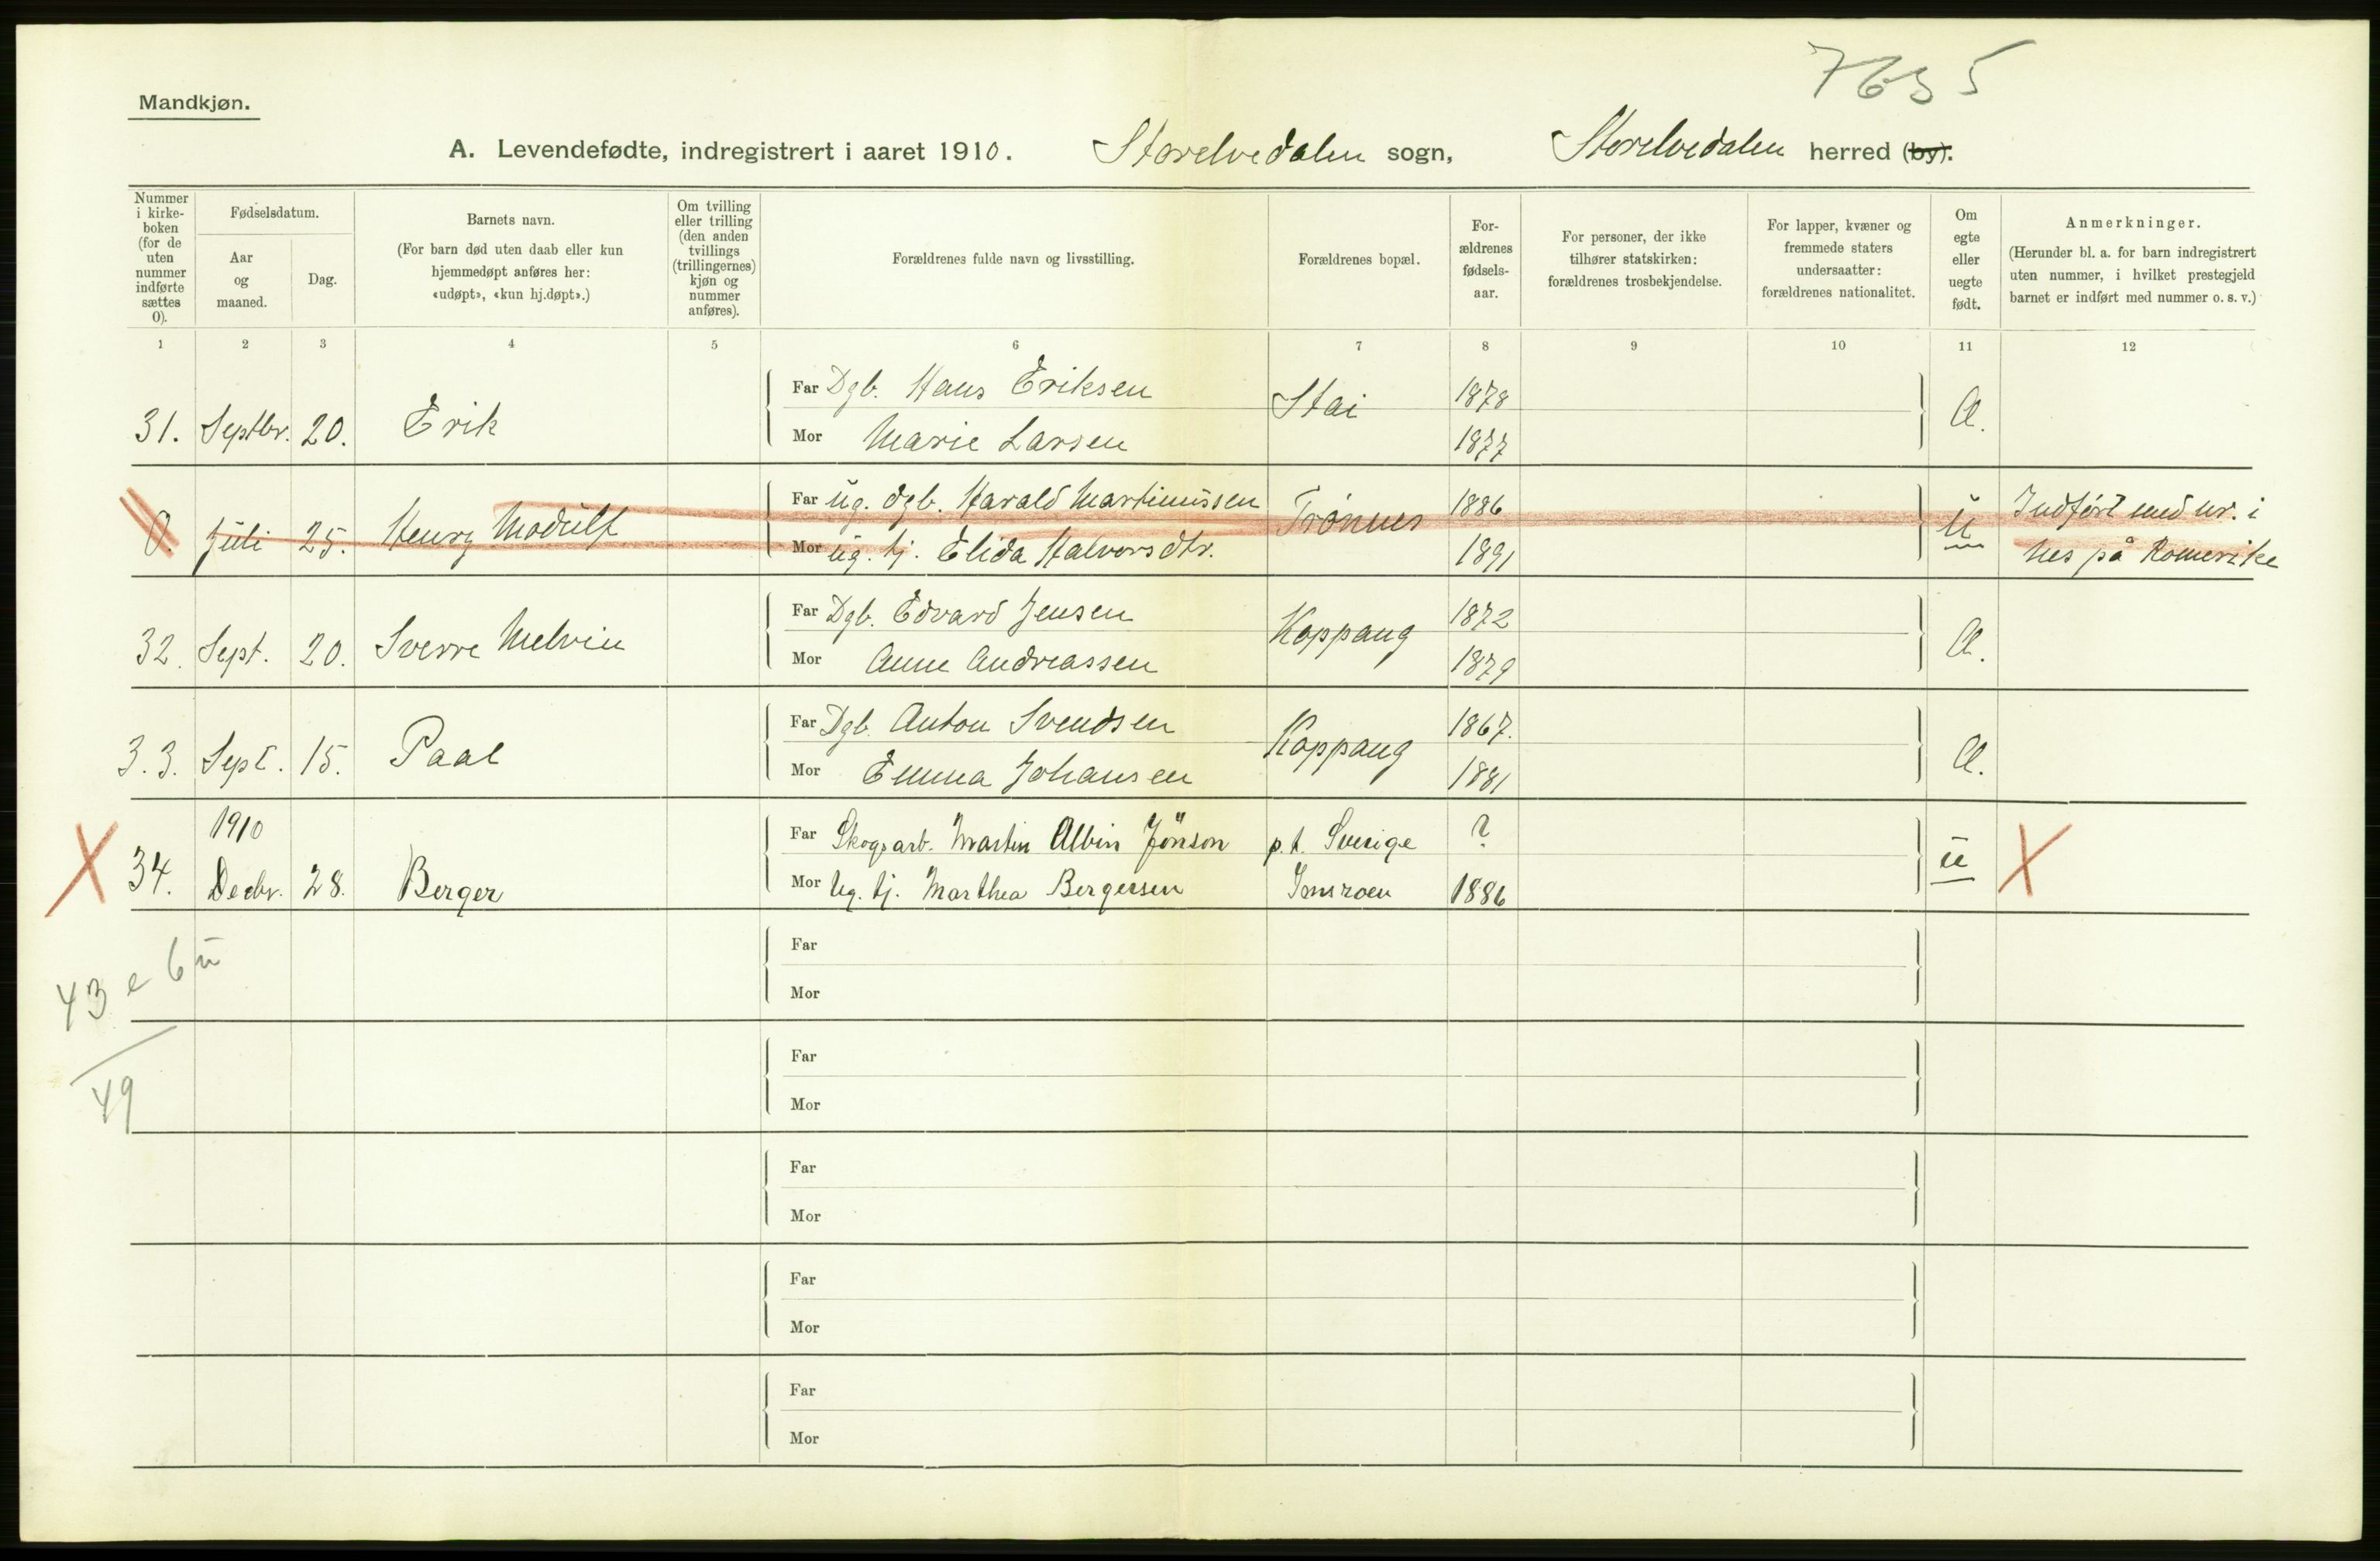 7635
Mandkjøn.
A. Levendefødte, indregistrert i aaret 1910. Storelvedalen sogn, Storelvedalen herred (by).
Nummer i kirke-boken (for de uten nummer indførte sættes 0).
Fødselsdatum.
Aar og maaned.
Dag.
Barnets navn.
(For barn død uten daab eller kun hjemmedøpt anføres her: «udøpt», «kun hj.døpt».)
Om tvilling eller trilling (den anden tvillings (trillingernes) kjøn og nummer anføres).
Forældrenes fulde navn og livsstilling.
Forældrenes bopæl.
For-ældrenes fødsels-aar.
For personer, der ikke tilhører statskirken: forældrenes trosbekjendelse.
For lapper, kvæner og fremmede staters undersaatter: forældrenes nationalitet.
Om egte eller uegte født.
Anmerkninger.
(Herunder bl. a. for barn indregistrert uten nummer, i hvilket prestegjeld barnet er indført med nummer o. s. v.)
1 2 3 4 5 6 7 8 9 10 11 12
Far Dgb. Hans Eriksen Stai 1878
31. Septbr. 20. Erik Mor Marie Larsen 1877 Æ.
Far ug. dgb. Harald Martinussen Trønnes 1886 Indført med nr. i
0. Juli 25. Henry Modulf Mor ug. tj. Elida Halvorsdtr. 1891 u Nes på Romerike
Far Dgb. Edvard Jensen Koppang 1872
32. Sept. 20. Sverre Melvin Mor Anne Andreassen 1879 Æ.
Far Dgb. Anton Svendsen Koppang 1867.
33. Sept. 15. Paal Mor Emma Johansen 1881 Æ.
1910 Far Skogsarb. Martin Albin Jönson p.t. Sverige ?
X 34. Decbr. 28. Berger Mor Ug. tj. Marthea Bergersen Imsroen 1886 u X
43 e 6 u
49
Far
Mor
Far
Mor
Far
Mor
Far
Mor
Far
Mor